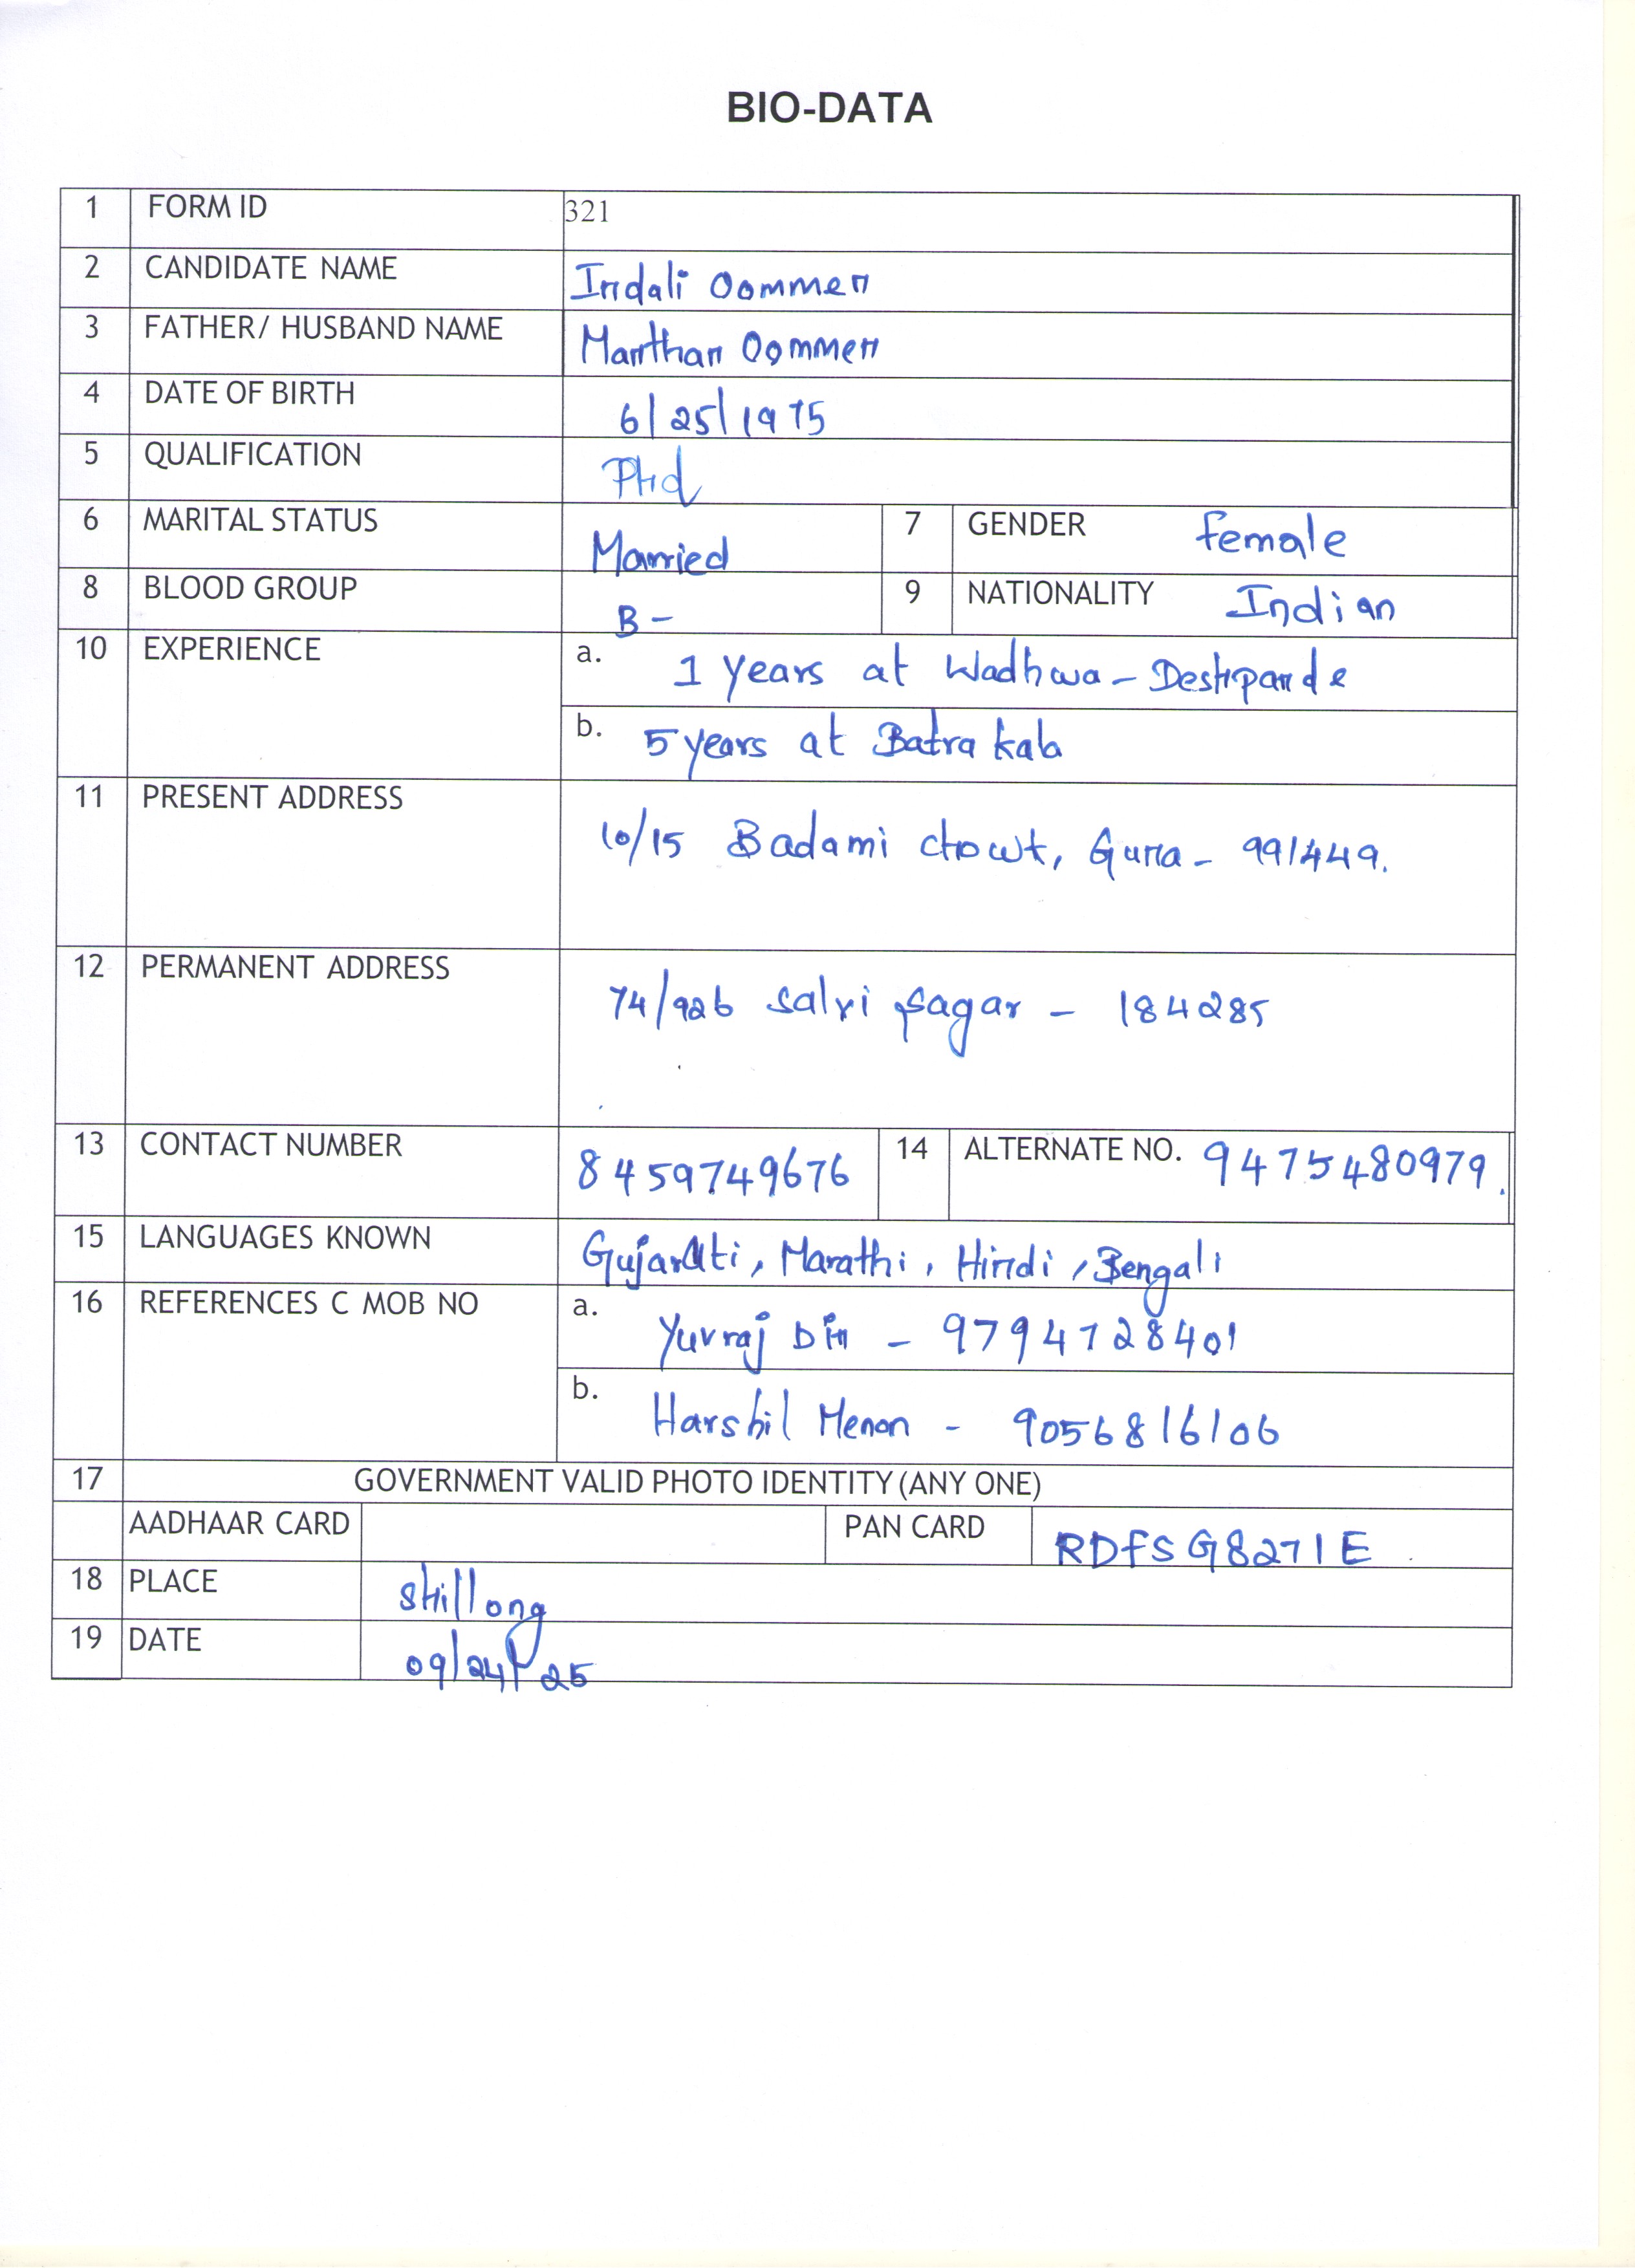 BIO-DATA
1 FORM ID 321
2 CANDIDATE NAME Indali Oommen
3 FATHER/ HUSBAND NAME Manthan Oommen
4 DATE OF BIRTH 6/25/1975
5 QUALIFICATION Phd
6 MARITAL STATUS Married 7 GENDER Female
8 BLOOD GROUP B- 9 NATIONALITY Indian
10 EXPERIENCE a. 1 years at Wadhwa - Deshpande
b. 5 years at Batra kala
11 PRESENT ADDRESS 10/15 Badami chowk, Guna - 991449.
12 PERMANENT ADDRESS 74/926 Salvi Sagar - 184285
13 CONTACT NUMBER 8459749676 14 ALTERNATE NO. 9475480979.
15 LANGUAGES KNOWN Gujarati, Marathi, Hindi, Bengali
16 REFERENCES C MOB NO a. Yuvraj Din - 9794728401
b. Harshil Menon - 9056816106
17 GOVERNMENT VALID PHOTO IDENTITY (ANY ONE)
AADHAAR CARD PAN CARD RDFSG8271E
18 PLACE Shillong
19 DATE 09/24/25